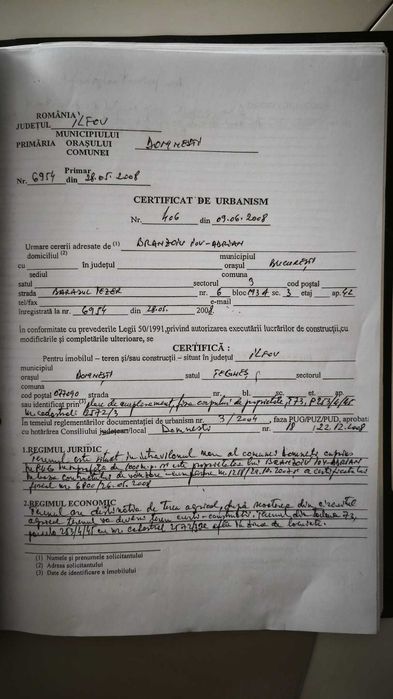 ROMÂNIA
JUDEŢUL ILFOV
MUNICIPIULUI
PRIMĂRIA ORAŞULUI DOMNEŞTI
COMUNEI
Primar
Nr. 6954 din 28.05.2008
CERTIFICAT DE URBANISM
Nr. 406 din 09.06.2008
Urmare cererii adresate de (1) BRANZOIU ION-ADRIAN
domiciliul (2) municipiul
cu în judeţul oraşul BUCUREŞTI
sediul comuna
satul sectorul 3 cod poştal
strada nr. 6 bloc M3A sc. 3 etaj ap. 42
tel/fax e-mail
înregistrata la nr. 6954 din 28.05. 2008
În conformitate cu prevederile Legii 50/1991, privind autorizarea executării lucrărilor de construcţii, cu
modificările şi completările ulterioare, se
CERTIFICĂ :
Pentru imobilul – teren şi/sau construcţii – situat în judeţul ILFOV
municipiul
oraşul DOMNEŞTI satul ŢEGHEŞ sectorul
comuna
cod poştal 077090 strada nr. bl. sc. et. ap.
sau identificat prin (3) plan de amplasament, T73, P253/4/45
nr cadastral 2572/3
În temeiul reglementărilor documentaţiei de urbanism nr. 3/2004, faza PUG/PUZ/PUD, aprobată
cu hotărârea Consiliului judeţean/local Domneşti nr. 18 / 22.12.2008
1.REGIMUL JURIDIC
Terenul este situat în intravilanul nou al comunei Domneşti cuprins
în PUG în suprafaţa de m.p. şi este proprietatea lui BRANZOIU ION-ADRIAN
în baza contractului de vânzare-cumpărare nr. certificatului
fiscal nr.
2.REGIMUL ECONOMIC
Terenul are destinaţia de teren agricol, după scoaterea din circuitul
agricol terenul va deveni teren curţi-construcţii. Terenul din tarlaua 73,
parcela 253/4/45 cu nr cadastral este în zona de locuinţe.
(1) Numele şi prenumele solicitantului
(2) Adresa solicitantului
(3) Date de identificare a imobilului